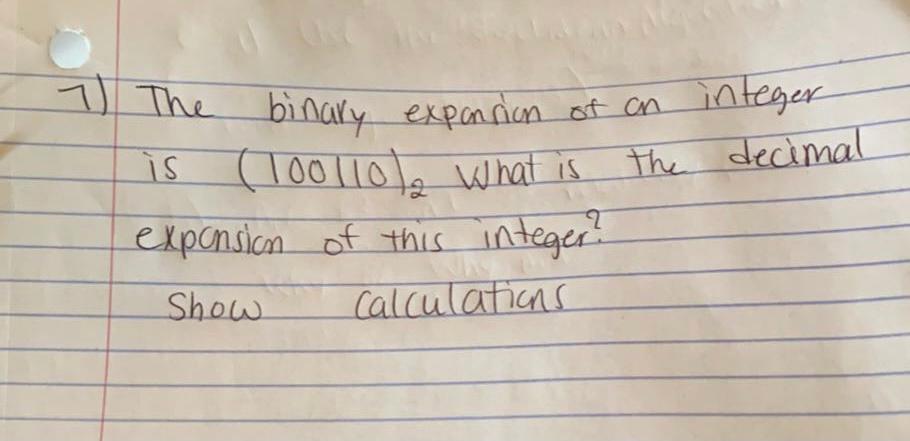 7) The binary expansion of an integer
is (100110)₂ What is the decimal
expansion of this integer?
Show Calculations